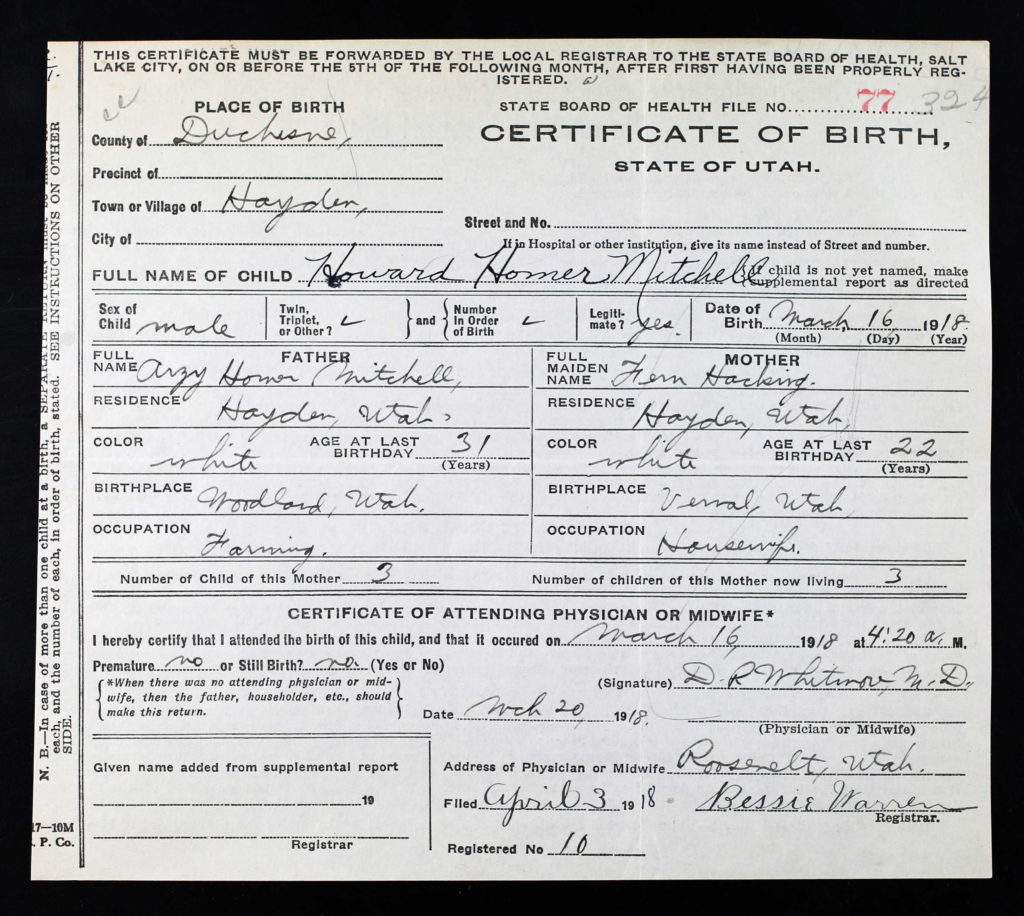 THIS CERTIFICATE MUST BE FORWARDED BY THE LOCAL REGISTRAR TO THE STATE BOARD OF HEALTH, SALT
LAKE CITY, ON OR BEFORE THE 5TH OF THE FOLLOWING MONTH, AFTER FIRST HAVING BEEN PROPERLY REG-
ISTERED.
PLACE OF BIRTH
STATE BOARD OF HEALTH FILE NO. 77 324
County of Duchesne,
CERTIFICATE OF BIRTH,
STATE OF UTAH.
Precinct of
Town or Village of Hayden,
Street and No.
City of
If in Hospital or other institution, give its name instead of Street and number.
FULL NAME OF CHILD Howard Homer Mitchell (If child is not yet named, make
supplemental report as directed
Sex of Child male
Twin, Triplet, or Other? ✓ } and { Number In Order of Birth ✓
Legiti- mate? yes.
Date of Birth March 16 1918.
(Month) (Day) (Year)
FATHER
FULL NAME Arzy Homer Mitchell,
RESIDENCE Hayden, Utah,
COLOR white AGE AT LAST BIRTHDAY 31 (Years)
BIRTHPLACE Woodland, Utah.
OCCUPATION Farming.
MOTHER
FULL MAIDEN NAME Fern Hacking.
RESIDENCE Hayden, Utah,
COLOR white AGE AT LAST BIRTHDAY 22 (Years)
BIRTHPLACE Vernal, Utah,
OCCUPATION Housewife.
Number of Child of this Mother 3 Number of children of this Mother now living 3
CERTIFICATE OF ATTENDING PHYSICIAN OR MIDWIFE*
I hereby certify that I attended the birth of this child, and that it occured on March 16, 1918 at 4:20 a. M.
Premature no or Still Birth? no. (Yes or No)
{ *When there was no attending physician or mid-
wife, then the father, householder, etc., should
make this return. }
(Signature) D. R. M. D.
Date Mch 20, 1918.
(Physician or Midwife)
Given name added from supplemental report
19
Registrar
Address of Physician or Midwife Roosevelt, Utah.
Filed April 3 1918 Bessie Warren
Registrar.
Registered No 10
N. B.—In case of more than one child at a birth, a SEPARATE RETURN must be made,
each, and the number of each, in order of birth, stated. SEE INSTRUCTIONS ON OTHER
SIDE.
17—10M
. P. Co.